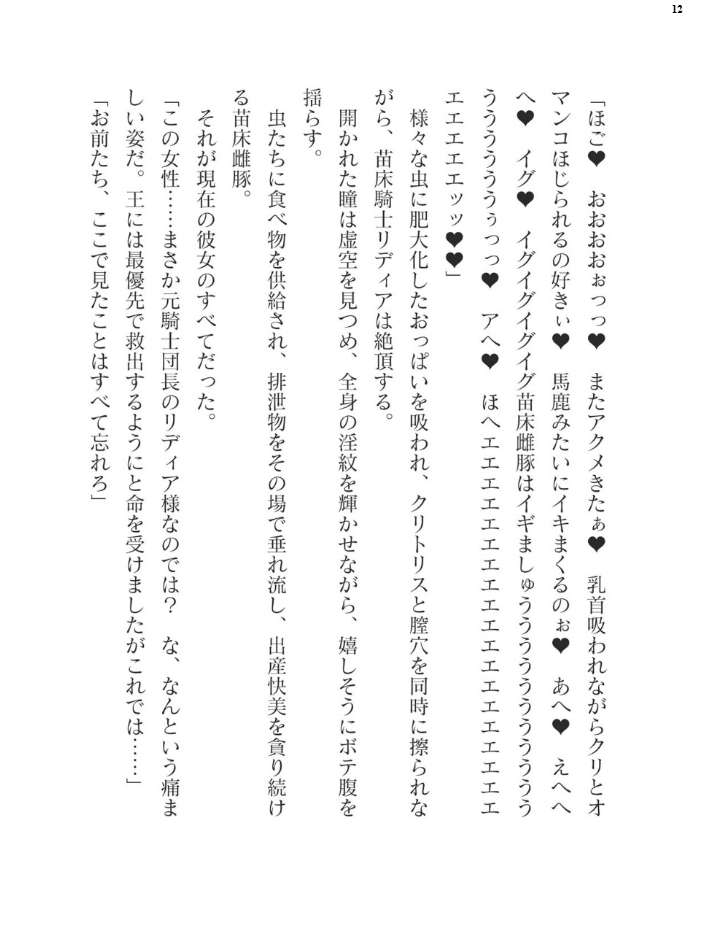 12
「ほご♥　おおおおぉっっ♥　またアクメきたぁ♥　乳首吸われながらクリとオ
マンコほじられるの好きぃ♥　馬鹿みたいにイキまくるのぉ♥　あへ♥　えへへ
へ♥　イグ♥　イグイグイグイグ苗床雌豚はイギましゅうううううううううう
ううううううぅっっ♥　アへ♥　ほへエエエエエエエエエエエエエエエエエエエ
エエエエエッッ♥♥」
　様々な虫に肥大化したおっぱいを吸われ、クリトリスと膣穴を同時に擦られな
がら、苗床騎士リディアは絶頂する。
　開かれた瞳は虚空を見つめ、全身の淫紋を輝かせながら、嬉しそうにボテ腹を
揺らす。
　虫たちに食べ物を供給され、排泄物をその場で垂れ流し、出産快美を貪り続け
る苗床雌豚。
　それが現在の彼女のすべてだった。
「この女性……まさか元騎士団長のリディア様なのでは？　な、なんという痛ま
しい姿だ。王には最優先で救出するようにと命を受けましたがこれでは……」
「お前たち、ここで見たことはすべて忘れろ」